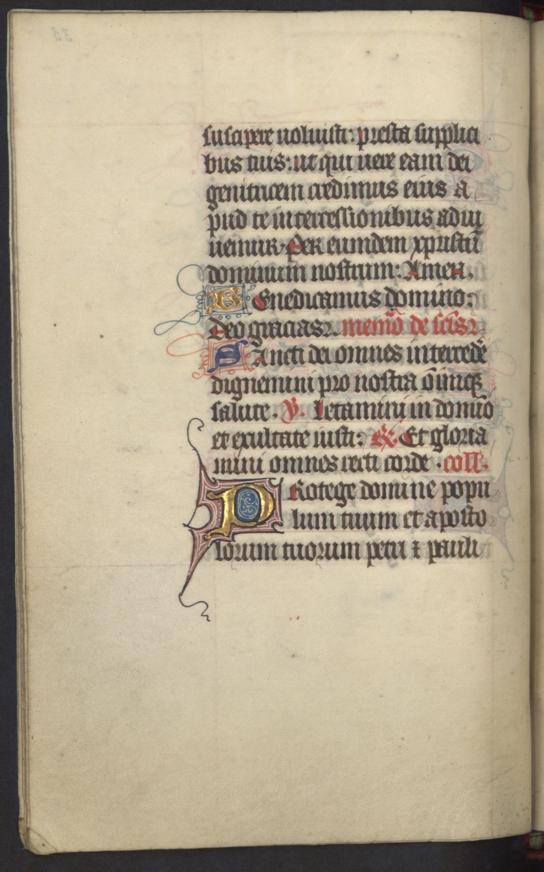 suscipere uoluisti: presta supplici
bus tuis: ut qui uere eam dei
genitricem credimus eius a
pud te intercessionibus adiu
uemur. Per eumdem xpristū
dominum nostrum: Amen.
Benedicamus domino:
Deo gracias. memō de scīs
Sancti dei omnes intercedē
dignemini pro nostra ōniūqȝ
salute. ℣. letamini in domīo
et exultate iusti: ℟. Et gloria
mini omnes recti corde. coll.
Protege domine popu
lum tuum et aposto
lorum tuorum petri ⁊ pauli